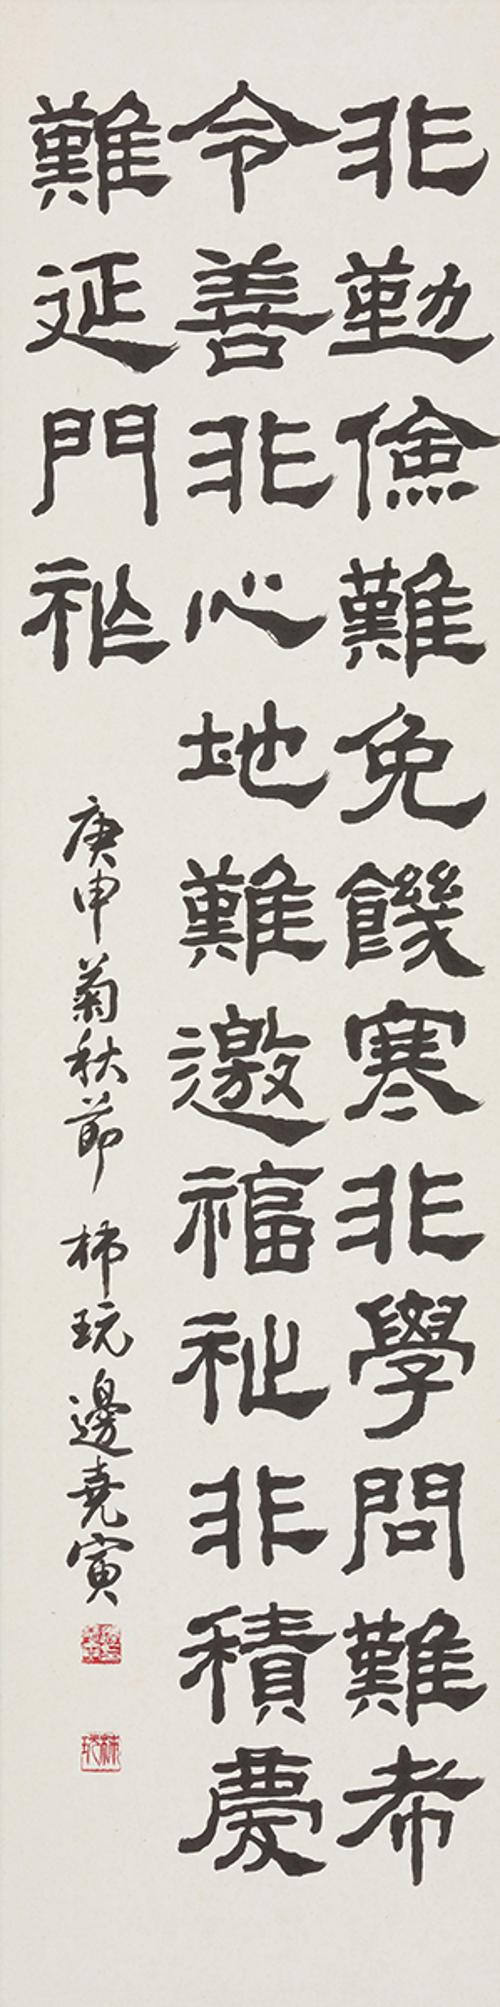 非勤儉難免饑寒非學問難希
令善非心地難邀福祉非積慶
難延門祚
庚申菊秋節 柿玩邊堯寅